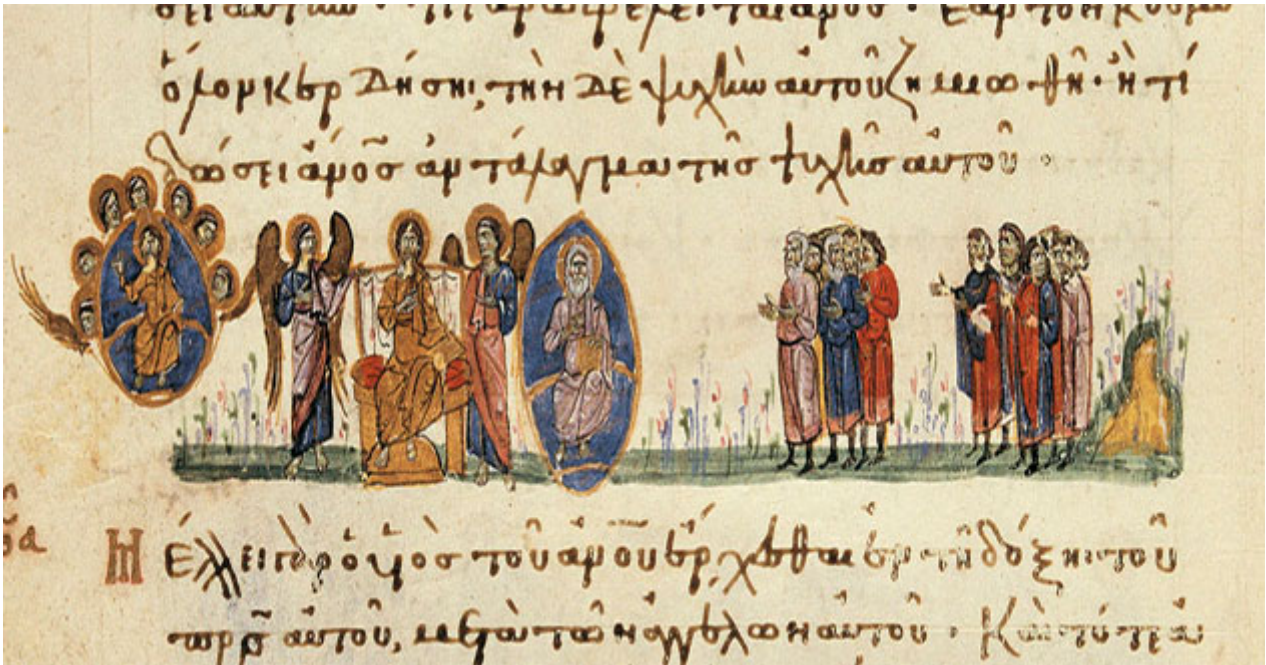 ὅλον κερδήσῃ, τὴν δὲ ψυχὴν αὐτοῦ ζημιωθῇ· ἢ τί
δώσει ἄνος ἀντάλλαγμα τῆς ψυχῆς αὐτοῦ·
Μέλλει γὰρ ὁ υἱὸς τοῦ ἀνου ἔρχεσθαι ἐν τῇ δόξῃ τοῦ
πρς αὐτοῦ, μετὰ τῶν ἀγγέλων αὐτοῦ· Καὶ τότε